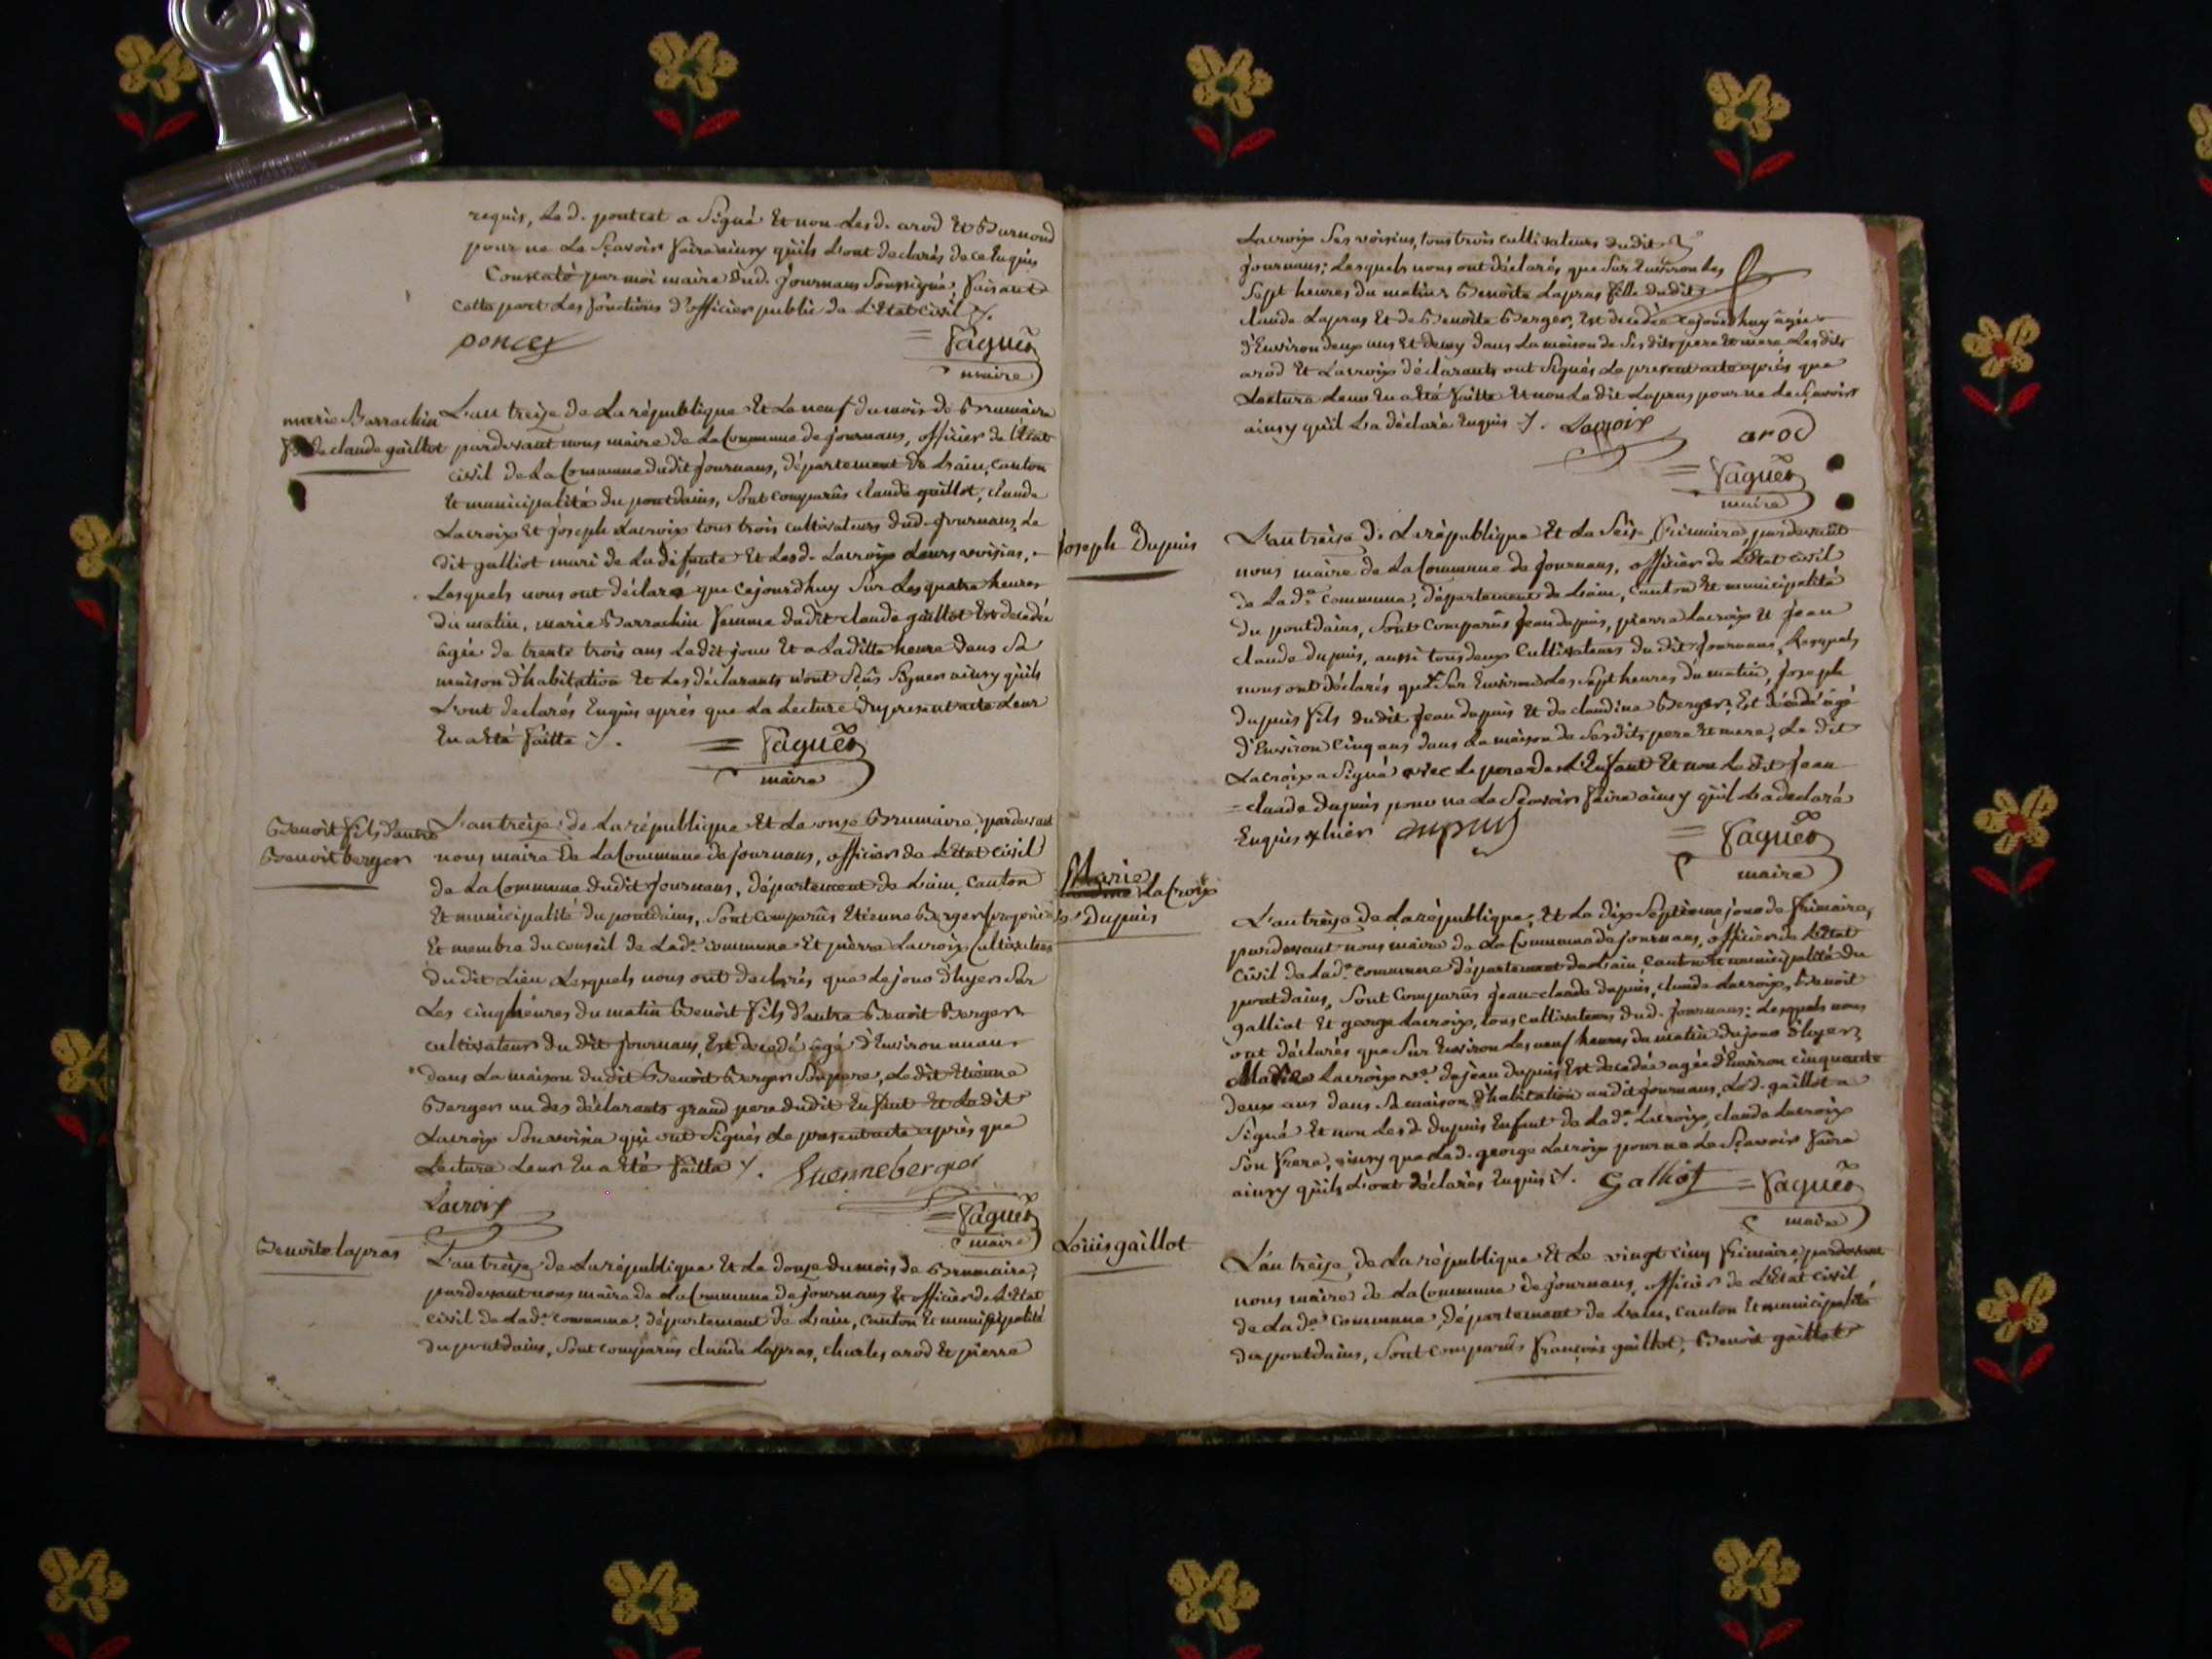 requis, Le d. poncet a Signé Et non Lesd. arod Et Burnond
pour ne Le Sçavoir faire ainsy quils L'ont declarés de ce Enquis
Constaté par moi maire dud. Journans Soussigné, faisant
cette part Les fonctions d'officier public de L'Etat civil ./.
poncet
= Vaguer
maire
marie Barrachin
fe de claude gaillot
L'an treize de La république Et Le neuf du mois de Brumaire
pardevant nous maire de La Commune de journans, officier de l'Etat
civil de La Commune dudit Journans, département de L'ain, canton
Et municipalité du pontdains, Sont comparûs claude gaillot, claude
Lacroix Et joseph Lacroix tous trois cultivateurs dud. Journans, Le
dit galliot mari de La défunte Et Lesd. Lacroix Leurs voisins,
Lesquels nous ont déclaré que cejourdhuy Sur Les quatre heures
du matin, marie Barrachin femme dudit claude gaillot Est decedée
âgée de trente trois ans Ledit jour Et a Laditte heure dans Sa
maison d'habitation Et Les déclarants n'ont Sçûs Signer ainsy quils
L'ont declarés Enquis après que La Lecture du present acte Leur
En a Eté faitte ./.
= Vaguer
maire
Benoit fils d'autre
Benoit berger
L'an treize de La république Et Le onze Brumaire, pardevant
nous maire de La Commune de journans, officier de L'Etat civil
de La Commune dudit Journans, département de L'ain, canton
Et municipalité du pontdains, Sont comparûs Etienne Berger
Et membre du conseil de Lade commune Et pierre Lacroix Cultivateur
du dit Lieu Lesquels nous ont declarés que Le jour d'hyer Sur
Les cinq heures du matin Benoit fils d'autre Benoit Berger
cultivateur du dit Journans, Est decedé âgé d'Environ un an
dans La maison dudit Benoit Berger Son pere, Le dit Etienne
Berger un des déclarants grand pere dudit Enfant Et Le dit
Lacroix Son voisin qui ont Signés Le present acte après que
Lecture Leur En a Eté faitte ./. Etienneberger
Lacroix
= Vaguer
maire
Benoite lapras
L'an treize de La république Et Le douze du mois de Brumaire,
pardevant nous maire de La Commune de journans Et officier de L'Etat
civil de Lade commune, département de L'ain, canton Et municipalité
du pontdains, Sont comparûs claude Lapras, charles arod Et pierre
Lacroix Ses voisins, tous trois cultivateurs dudit
Journans; Lesquels nous ont déclarés que Sur Environ Les
Sept heures du matin Benoite Lapras fille dudit
claude Lapras Et de Benoite Berger, Est decedée cejourdhuy âgée
d'Environ deux ans Et demy dans La maison de Ses dits pere Et mere Les dits
arod Et Lacroix déclarants ont Signés Le present acte après que
Lecture Leur En a Eté faitte Et non Le dit Lapras pour ne Le Sçavoir
ainsy qu'il L'a déclaré Enquis ./. Lacroix
arod
= Vaguer
maire
Joseph Dupuis
L'an treize de La république Et Le Seize frimaire, pardevant
nous maire de La Commune de Journans, officier de L'Etat civil
de Lade commune, département de L'ain, Canton Et municipalité
du pontdains, Sont Comparûs Jean dupuis, pierre Lacroix Et Jean
claude dupuis, aussi tous deux Cultivateurs du dit Journans, Lesquels
nous ont déclarés que Sur Environ Les Sept heures du matin, Joseph
dupuis fils dudit Jean dupuis Et de claudine Berger, Est décédé âgé
d'Environ Cinq ans dans La maison de Ses dits pere Et mere, Le dit
Lacroix a Signé avec Le pere de L'Enfant Et non Le dit Jean
= claude dupuis pour ne Le Sçavoir faire ainsy qu'il L'a declaré
Enquis dupuis
= Vaguer
maire
Marie
La Croix
ve Dupuis
L'an treize de La république, Et Le dix Septieme jour de frimaire,
pardevant nous maire de La Commune de journans, officier de L'Etat
Civil de Lade commune département de L'ain, canton Et municipalité du
pontdains, Sont Comparûs Jean-claude dupuis, claude Lacroix, Benoit
galliot Et george Lacroix, tous cultivateurs dud. Journans: Lesquels nous
ont déclarés que Sur Environ Les neuf heures du matin du jour d'hyer,
Marie Lacroix ve de jean dupuis Est decedée agée d'Environ cinquante
deux ans dans Sa maison d'habitation audit Journans, Led. gaillot a
Signé Et non Les d. dupuis Enfant de Lade Lacroix, claude Lacroix
Son frere, ainsy que Led. george Lacroix pour ne Le Sçavoir faire
ainsy qu'ils L'ont déclarés Enquis ./. Galliot = Vaguer
maire
Loüis gaillot
L'an treize de La république Et Le vingt cinq frimaire, pardevant
nous maire de La Commune de journans, officier de L'Etat civil
de Lade commune, département de L'ain, canton Et municipalité
du pontdains, Sont comparûs françois gaillot, Benoit gaillot